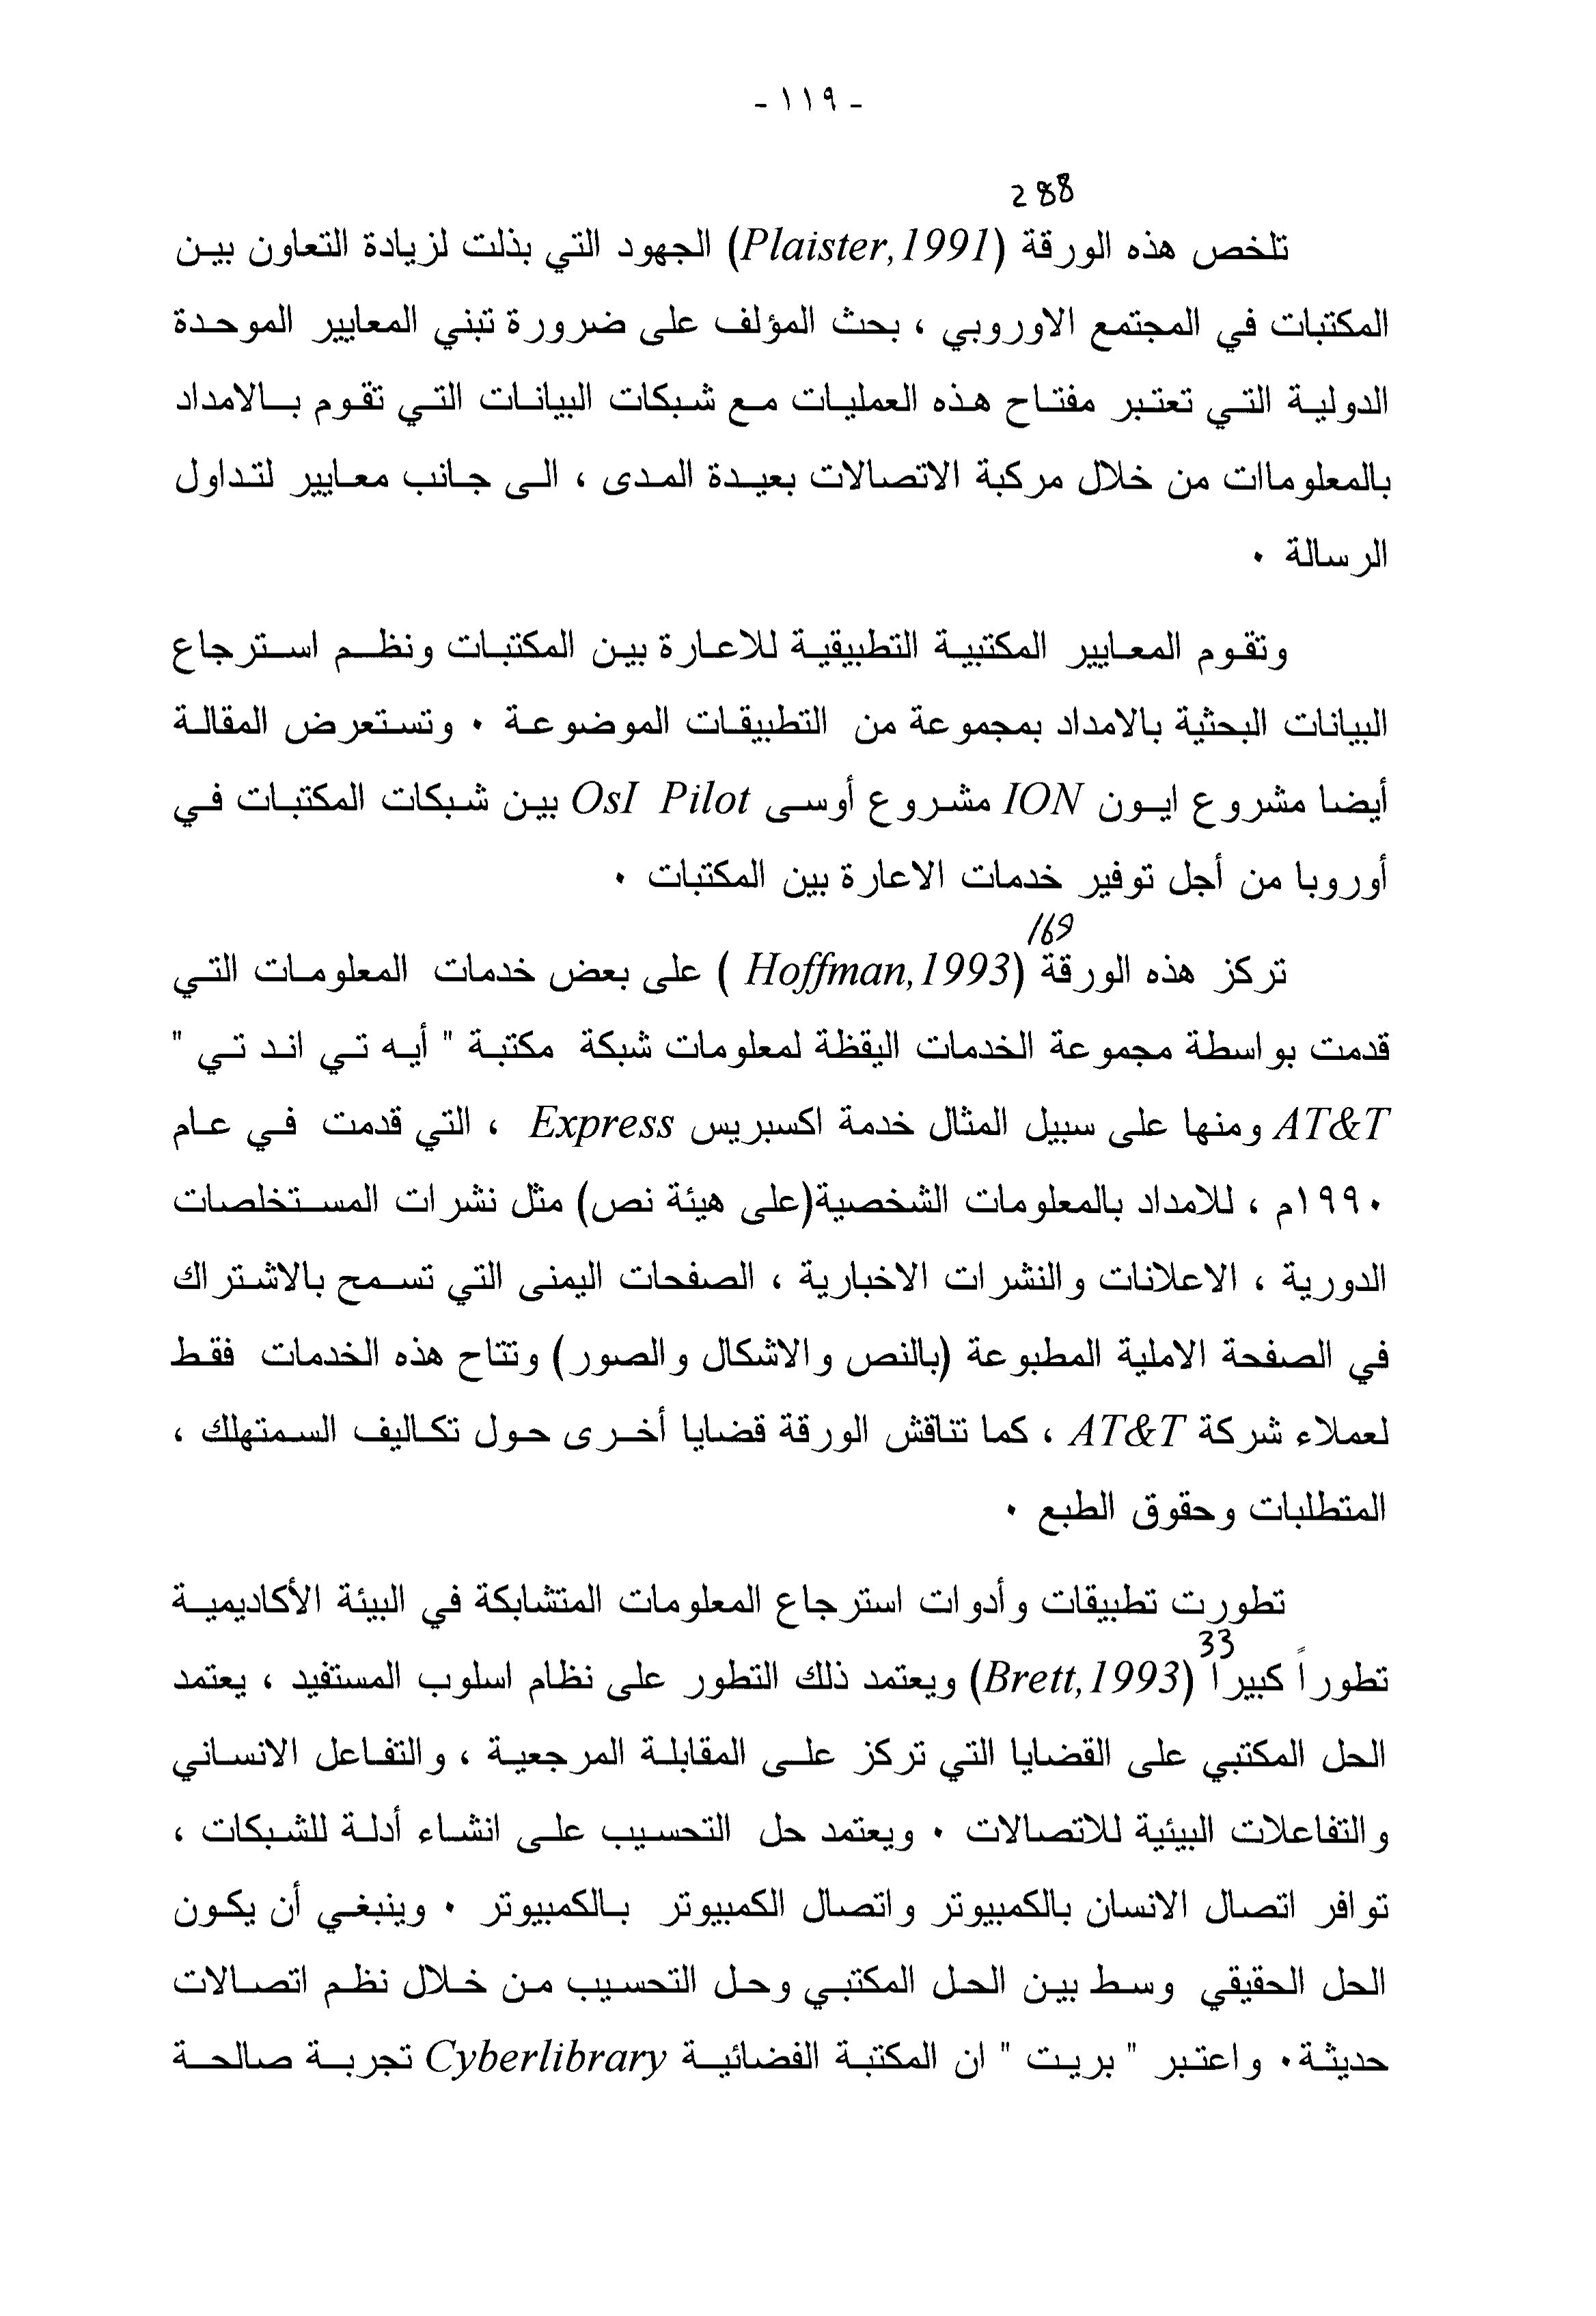 - ١١٩ -
288
تلخص هذه الورقة (Plaister,1991) الجهود التي بذلت لزيادة التعاون بين
المكتبات في المجتمع الاوروبي ، بحث المؤلف على ضرورة تبني المعايير الموحدة
الدولية التي تعتبر مفتاح هذه العمليات مع شبكات البيانات التي تقوم بالامداد
بالمعلوماات من خلال مركبة الاتصالات بعيدة المدى ، الى جانب معايير لتداول
الرسالة ٠
وتقوم المعايير المكتبية التطبيقية للاعارة بين المكتبات ونظم استرجاع
البيانات البحثية بالامداد بمجموعة من التطبيقات الموضوعة ٠ وتستعرض المقالة
أيضا مشروع ايون ION مشروع أوسى OsI Pilot بين شبكات المكتبات في
أوروبا من أجل توفير خدمات الاعارة بين المكتبات ٠
169
تركز هذه الورقة (Hoffman,1993 ) على بعض خدمات المعلومات التي
قدمت بواسطة مجموعة الخدمات اليقظة لمعلومات شبكة مكتبة " أيه تي اند تي "
AT&T ومنها على سبيل المثال خدمة اكسبريس Express ، التي قدمت في عام
١٩٩٠م ، للامداد بالمعلومات الشخصية(على هيئة نص) مثل نشرات المستخلصات
الدورية ، الاعلانات والنشرات الاخبارية ، الصفحات اليمنى التي تسمح بالاشتراك
في الصفحة الاملية المطبوعة (بالنص والاشكال والصور) وتتاح هذه الخدمات فقط
لعملاء شركة AT&T ، كما تناقش الورقة قضايا أخرى حول تكاليف السمتهلك ،
المتطلبات وحقوق الطبع ٠
تطورت تطبيقات وأدوات استرجاع المعلومات المتشابكة في البيئة الأكاديمية
33
تطوراً كبيراً (Brett,1993) ويعتمد ذلك التطور على نظام اسلوب المستفيد ، يعتمد
الحل المكتبي على القضايا التي تركز على المقابلة المرجعية ، والتفاعل الانساني
والتفاعلات البيئية للاتصالات ٠ ويعتمد حل التحسيب على انشاء أدلة للشبكات ،
توافر اتصال الانسان بالكمبيوتر واتصال الكمبيوتر بالكمبيوتر ٠ وينبغي أن يكون
الحل الحقيقي وسط بين الحل المكتبي وحل التحسيب من خلال نظم اتصالات
حديثة٠ واعتبر " بريت " ان المكتبة الفضائية Cyberlibrary تجربة صالحة